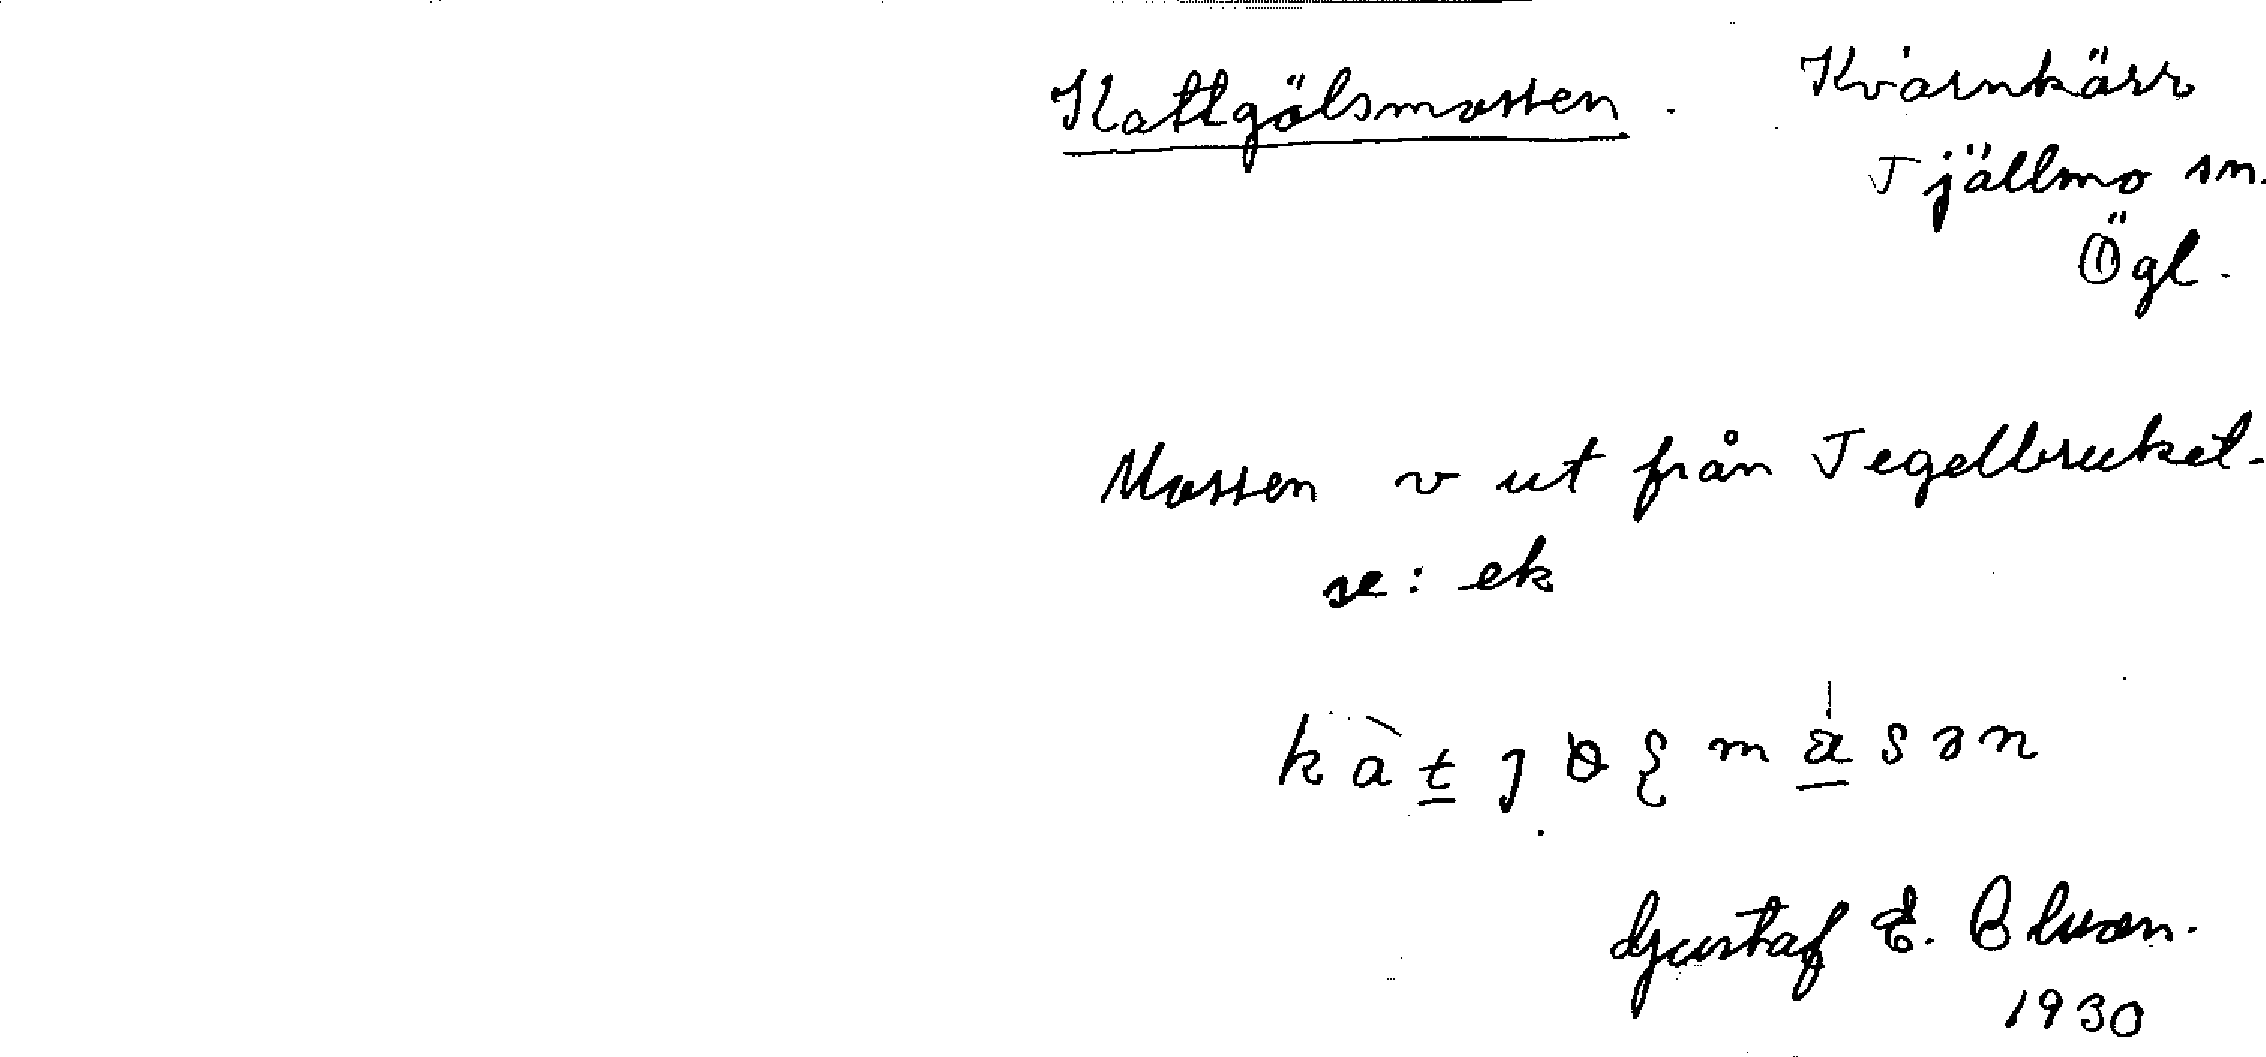 Kattgölsmossen. Kvarnkärr
Tjällmo sn.
Ögl.
Mossen v ut från Tegelbruket.
se: ek
Gustaf E.
1930